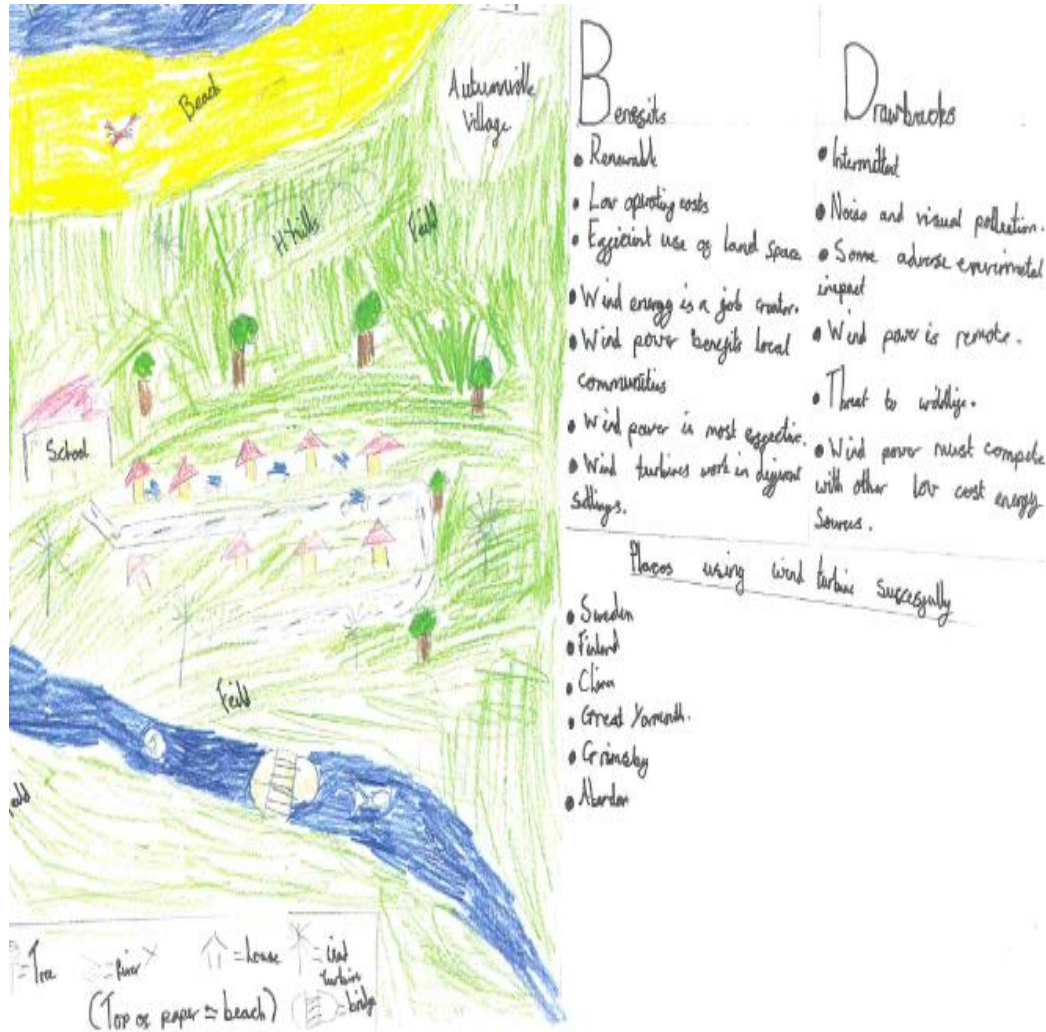 Beach
Autumnville
Village
Hihills
Feild
School
Feild
eild
= Tree
= River
= house
= Wind
turbine
= bridge
(Top of paper = beach)
Benefits
• Renewable
• Low operating costs
• Efficient use of land space
• Wind energy is a job creator.
• Wind power benefits local
communities
• Wind power is most effective.
• Wind turbines work in different
settings.
Drawbacks
• Intermittent
• Noise and visual pollution.
• Some adverse
impact
• Wind power is remote.
• Threat to wildlife.
• Wind power must compete
with other low cost energy
Sources.
Places using wind turbine successfully
• Sweden
• Finland
• China
• Great Yarmouth.
• Grimsby